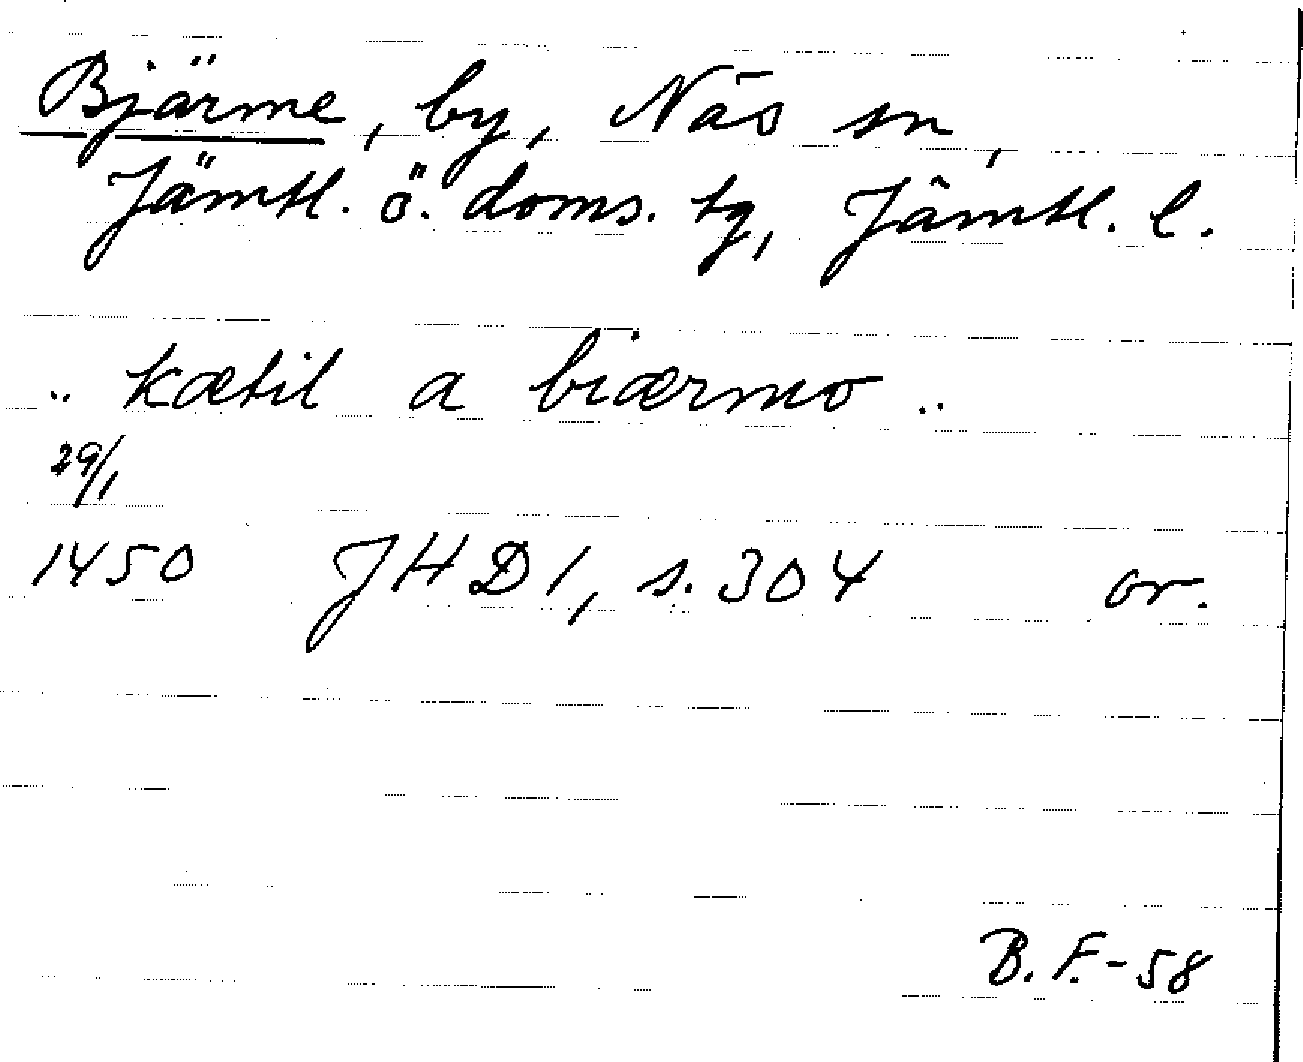 Bjärme, by, Näs sn,
Jämtl. ö. doms. tg, Jämtl. l.
.. kætil a biærmo ..
29/1
1450 JHD1, s. 304 or.
B. F. -58